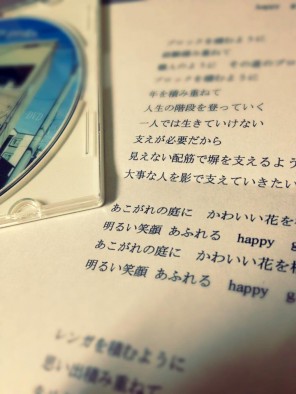 happy
ブロックを積むように
経験積み重ねて
ブロックを積むように
年を積み重ねて
人生の階段を登っていく
一人では生きていけない
支えが必要だから
見えない配筋で塀を支えるよう
大事な人を影で支えていきたい
あこがれの庭に　かわいい花を
明るい笑顔 あふれる　happy　g
あこがれの庭に　かわいい花を
明るい笑顔 あふれる　happy　g
レンガを積むように
思い出積み重ねて